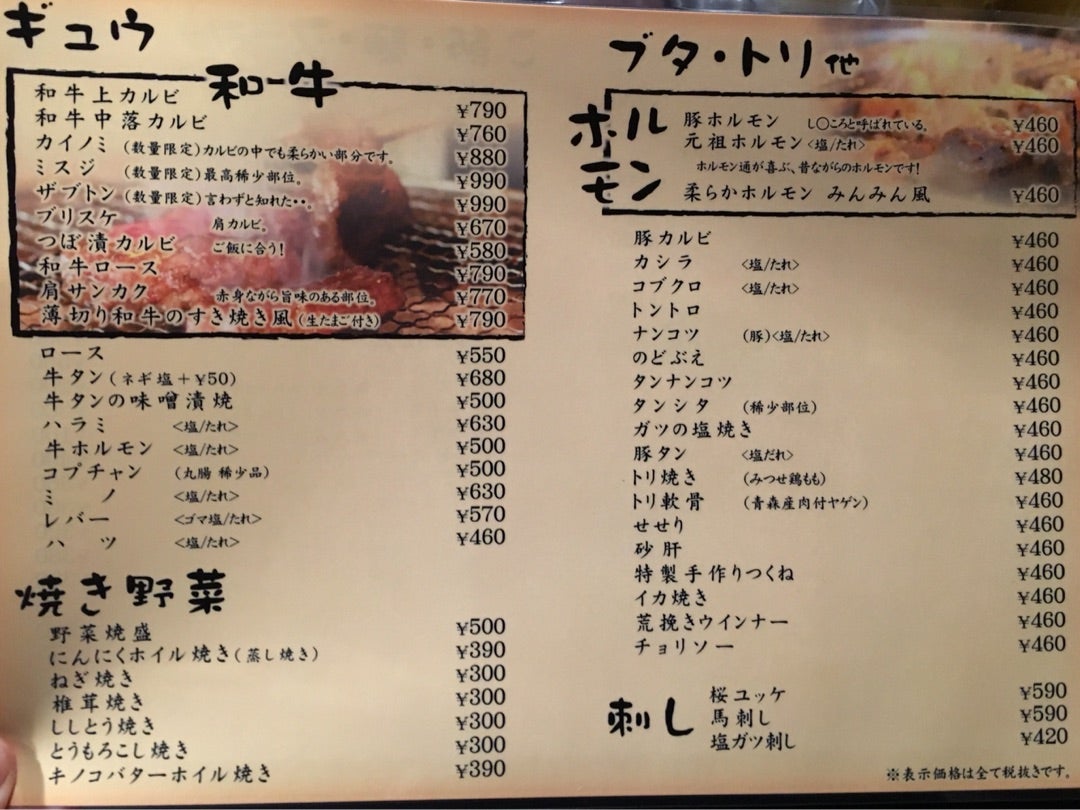 ギュウ
和牛
和牛上カルビ ¥790
和牛中落カルビ ¥760
カイノミ (数量限定)カルビの中でも柔らかい部分です。 ¥880
ミスジ (数量限定)最高稀少部位。 ¥990
ザブトン (数量限定)言わずと知れた・・。 ¥990
ブリスケ 肩カルビ。 ¥670
つぼ漬カルビ ご飯に合う! ¥580
和牛ロース ¥790
肩サンカク 赤身ながら旨味のある部位。 ¥770
薄切り和牛のすき焼き風(生たまご付き) ¥790
ロース ¥550
牛タン(ネギ塩+¥50) ¥680
牛タンの味噌漬焼 ¥500
ハラミ <塩/たれ> ¥630
牛ホルモン <塩/たれ> ¥500
コプチャン (丸腸 稀少品) ¥500
ミノ <塩/たれ> ¥630
レバー <ゴマ塩/たれ> ¥570
ハツ <塩/たれ> ¥460
焼き野菜
野菜焼盛 ¥500
にんにくホイル焼き(蒸し焼き) ¥390
ねぎ焼き ¥300
椎茸焼き ¥300
ししとう焼き ¥300
とうもろこし焼き ¥300
キノコバターホイル焼き ¥390
ブタ・トリ他
ホルモン
豚ホルモン し〇ころと呼ばれている。 ¥460
元祖ホルモン<塩/たれ> ¥460
ホルモン通が喜ぶ、昔ながらのホルモンです!
柔らかホルモン みんみん風 ¥460
豚カルビ ¥460
カシラ <塩/たれ> ¥460
コブクロ <塩/たれ> ¥460
トントロ ¥460
ナンコツ (豚)<塩/たれ> ¥460
のどぶえ ¥460
タンナンコツ ¥460
タンシタ (稀少部位) ¥460
ガツの塩焼き ¥460
豚タン <塩だれ> ¥460
トリ焼き (みつせ鶏もも) ¥480
トリ軟骨 (青森産肉付ヤゲン) ¥460
せせり ¥460
砂肝 ¥460
特製手作りつくね ¥460
イカ焼き ¥460
荒挽きウインナー ¥460
チョリソー ¥460
刺し
桜ユッケ ¥590
馬刺し ¥590
塩ガツ刺し ¥420
※表示価格は全て税抜きです。